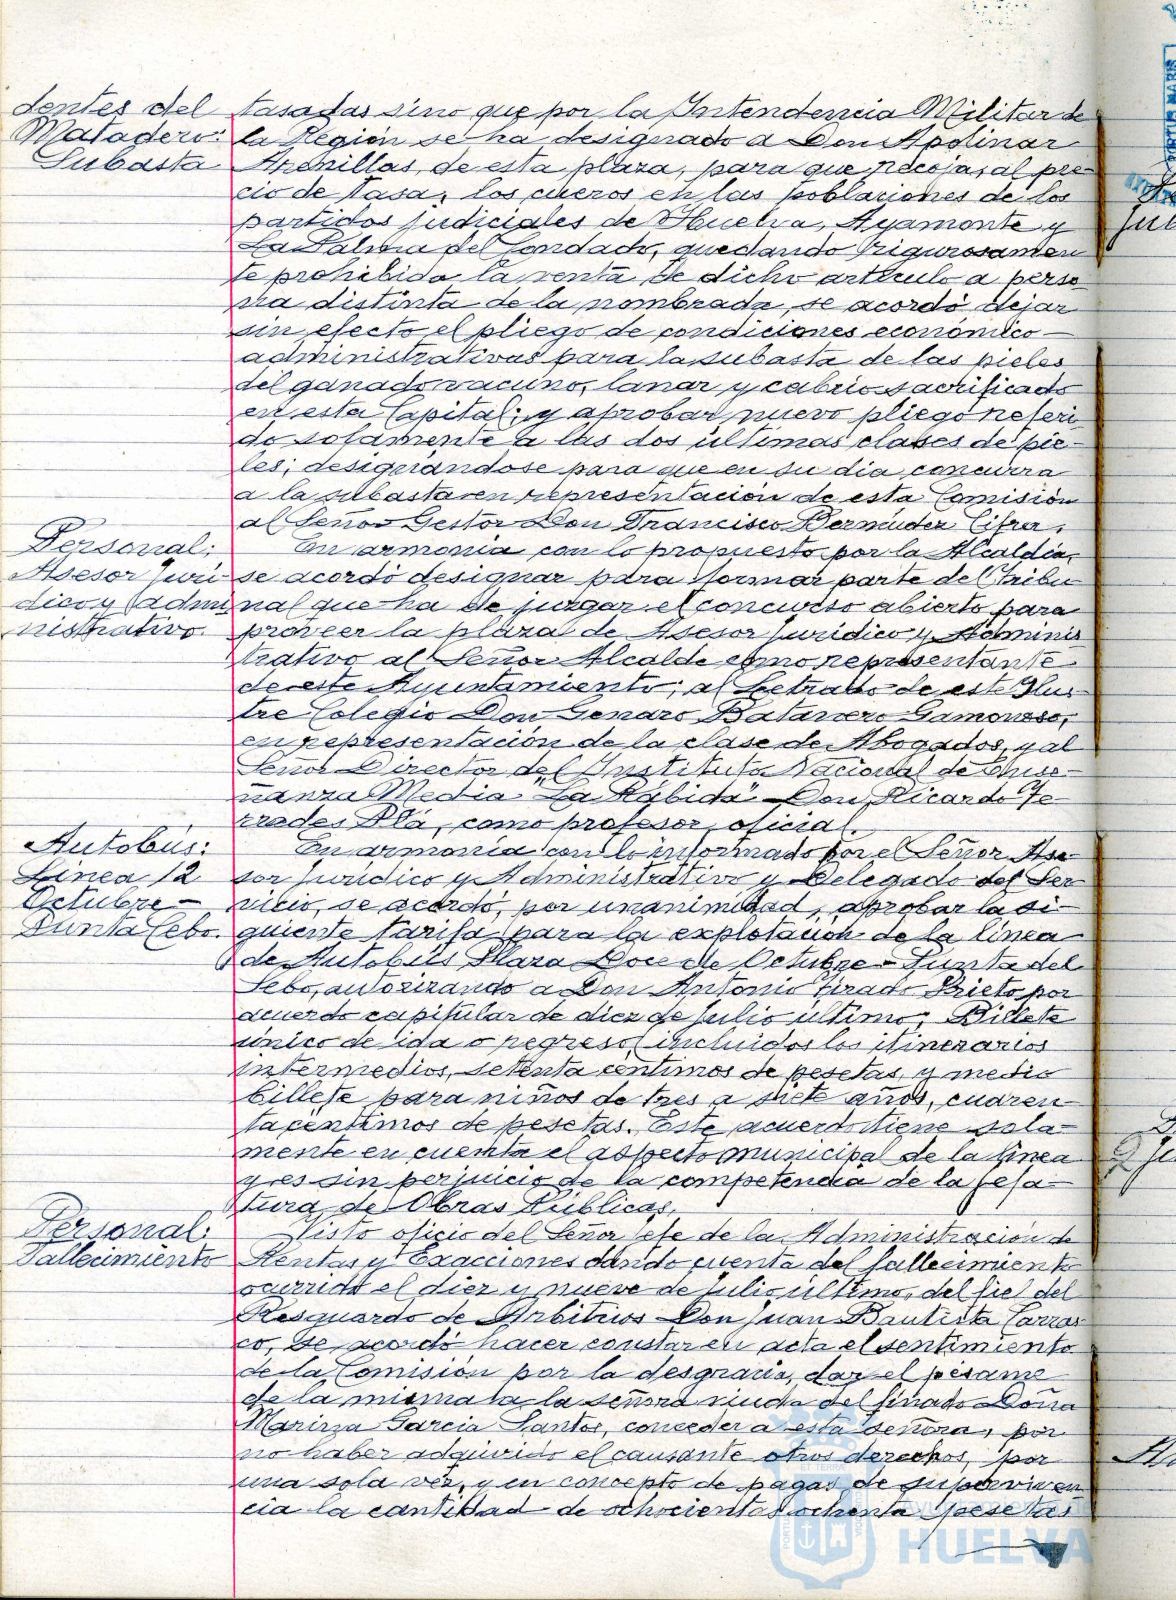 dentes del
Matadero:
Subasta
tasadas sino que por la Intendencia Militar de
la Región se ha designado a Don Apolinar
Arenillas, de esta plaza, para que recoja, al pre-
cio de tasa, los cueros en las poblaciones de los
partidos judiciales de Huelva, Ayamonte y
La Palma del Condado, quedando rigurosamen
te prohibida la venta de dicho artículo a perso
na distinta de la nombrada, se acordó dejar
sin efecto el pliego de condiciones económico-
administrativas para la subasta de las pieles
del ganado vacuno, lanar y cabrio sacrificado
en esta Capital; y aprobar nuevo pliego referi
do solamente a las dos últimas clases de pie-
les; designándose para que en su día concurra
a la subasta en representación de esta Comisión
al Señor Gestor Don Francisco Bermúdez Cifra.
Personal:
Asesor Juri-
dico y admi
nistrativo.
En armonía con lo propuesto por la Alcaldía,
se acordó designar para formar parte del Tribu
nal que ha de juzgar el concurso abierto para
proveer la plaza de Asesor jurídico y Adminis
trativo al Señor Alcalde como representante
de este Ayuntamiento; al Letrado de este Ilus-
tre Colegio Don Genaro Batanero Gamonoso,
en representación de la clase de Abogados, y al
Señor Director del Instituto Nacional de Ense-
ñanza Media "La Rábida" Don Ricardo Te-
rrades Plá, como profesor oficial.
Autobús:
Línea 12
Octubre-
Punta Cebo.
En armonía con lo informado por el Señor Ase-
sor jurídico y Administrativo y Delegado del Ser-
vicio, se acordó, por unanimidad, aprobar la si-
guiente tarifa para la explotación de la línea
de Autobús Plaza Doce de Octubre-Punta del
Sebo, autorizando a Don Antonio Tirado Prieto por
acuerdo capitular de diez de Julio último; Billete
único de ida o regreso, incluidos los itinerarios
intermedios, setenta céntimos de pesetas, y medio
billete para niños de tres a siete años, cuaren-
ta céntimos de pesetas. Este acuerdo tiene sola-
mente en cuenta el aspecto municipal de la línea
y es sin perjuicio de la competencia de la Jefa-
tura de Obras Públicas.
Personal:
Fallecimiento
Visto oficio del Señor Jefe de la Administración de
Rentas y Exacciones dando cuenta del fallecimiento
ocurrido el diez y nueve de Julio último, del fiel del
Resguardo de Arbitrios Don Juan Bautista Carras
co, se acordó hacer constar en acta el sentimiento
de la Comisión por la desgracia, dar el pésame
de la misma a la señora viuda del finado Doña
García Santos, conceder a esta señora, por
no haber adquirido el causante otros derechos, por
una sola vez, y en concepto de pagas de superviven
cia la cantidad de ochocientas ochenta pesetas
HUELVA